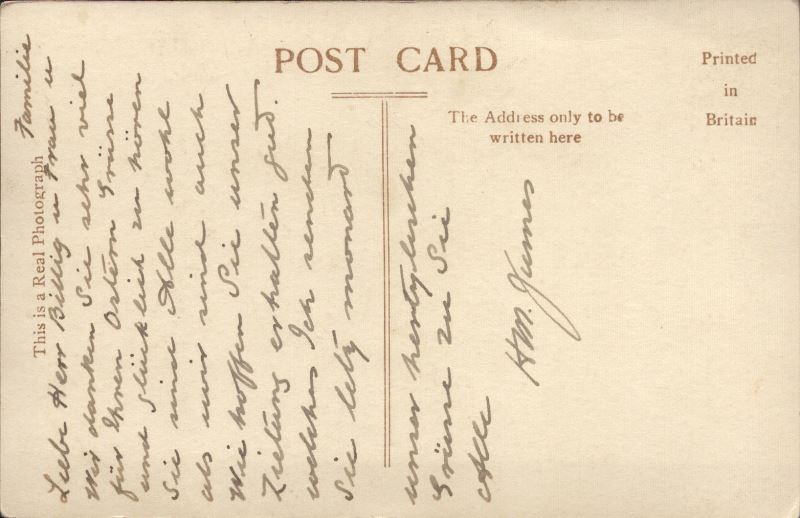 POST CARD
Printed
in
Britain
The Address only to be
written here
This is a Real Photograph
Familie
Liebe Herr Billig u Frau u
Wir danken Sie sehr viel
für Ihren Ostern Grüsse
und glücklich zu hören
Sie sind Alle wohl
als wir sind auch
Wie hoffen Sie unser
Zietung erhalten gud.
welches Ich senden
Sie letz monard
unser hertzlischen
Grüsse zu Sie
Alle
H M